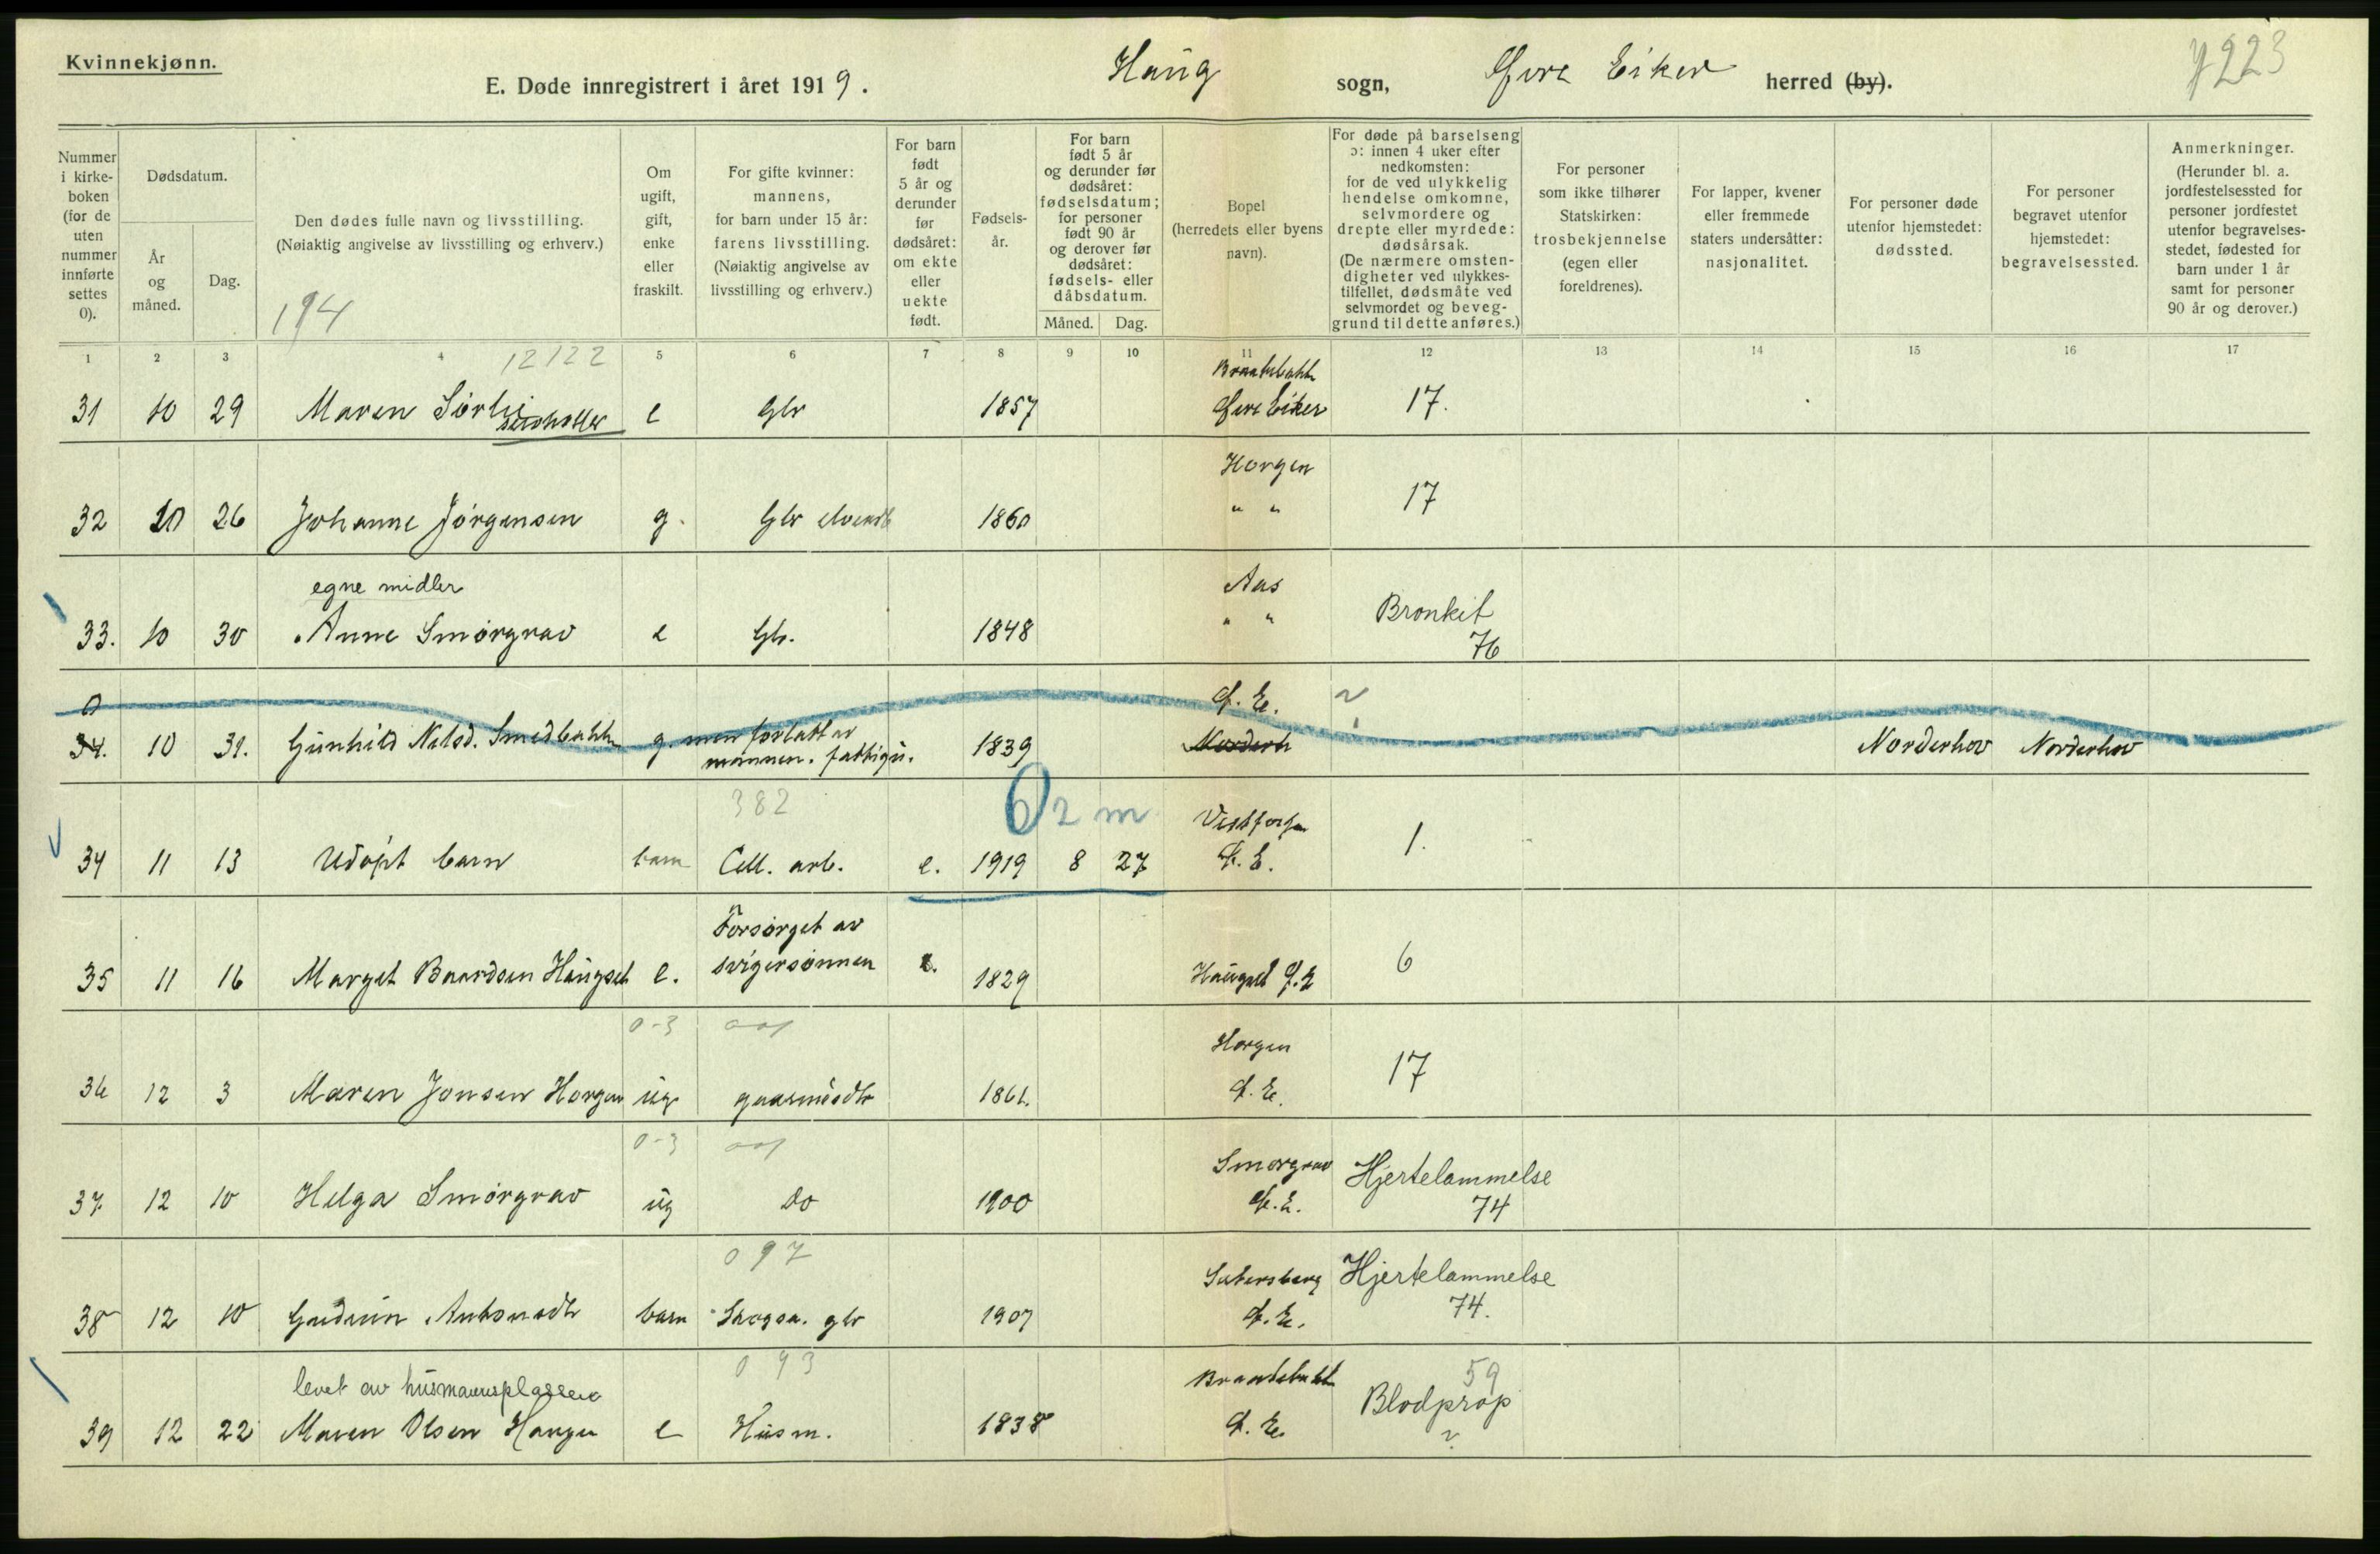 Kvinnekjønn.
E. Døde innregistrert i året 1919. Haug sogn, Øvre Eiker herred (by).
7223
Nummer i kirkeboken (for de uten nummer innførte settes 0).
Dødsdatum.
År og måned.
Dag.
Den dødes fulle navn og livsstilling.
(Nøiaktig angivelse av livsstilling og erhverv.)
194
Om ugift, gift, enke eller fraskilt.
For gifte kvinner: mannens, for barn under 15 år: farens livsstilling. (Nøiaktig angivelse av livsstilling og erhverv.)
For barn født 5 år og derunder før dødsåret: om ekte eller uekte født.
Fødselsår.
For barn født 5 år og derunder før dødsåret: fødselsdatum; for personer født 90 år og derover før dødsåret: fødsels- eller dåbsdatum.
Måned. Dag.
Bopel (herredets eller byens navn).
For døde på barselseng ɔ: innen 4 uker efter nedkomsten: for de ved ulykkelig hendelse omkomne, selvmordere og drepte eller myrdede: dødsårsak. (De nærmere omstendigheter ved ulykkestilfellet, dødsmåte ved selvmordet og beveggrund til dette anføres.)
For personer som ikke tilhører Statskirken: trosbekjennelse (egen eller foreldrenes).
For lapper, kvener eller fremmede staters undersåtter: nasjonalitet.
For personer døde utenfor hjemstedet: dødssted.
For personer begravet utenfor hjemstedet: begravelsessted.
Anmerkninger. (Herunder bl. a. jordfestelsessted for personer jordfestet utenfor begravelsesstedet, fødested for barn under 1 år samt for personer 90 år og derover.)
1 2 3 4 5 6 7 8 9 10 11 12 13 14 15 16 17
12122
31 10 29 Maren Sørli e Gbr 1857 Øvre Eiker 17.
Horgen
32 10 26 Johanne Jørgensen g. Gbr 1860 " " 17
egne midler Aas
33. 10 30 Anne Smørgrav e Gbr. 1848 " " Bronkit
76
0 Ø. E. ?
34. 10 31. Gunhild Nilsd. Smedbakk g. men forlatt av 1839 Norderh Norderhov Norderhov
mannen.
382 2 m
34 11 13 Udøpt barn barn Cell. arb. e. 1919 8 27 Ø. E. 1.
Forsørget av
35 11 16 Marget Baardsen Haugset e. svigersønnen 1829 Haugset Ø.E 6
0-3 Horgen
36 12 3 Maren Jonsen Horgen ug 1861. Ø. E. 17
0-3 Smørgrav Hjertelammelse
37 12 10 Helga Smørgrav ug Do 1900 Ø. E. 74
097 Hjertelammelse
38 12 10 Gudrun Antonsdtr barn Skogsa. gbr 1907 Ø. E. 74.
093 59
levet av husmannsplassen Blodprop
39 12 22 Maren Olsen Horgen e Husm. 1838 Ø. E. ?